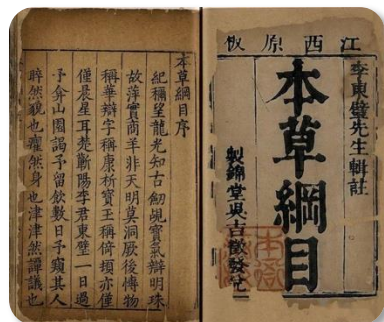 江西原板
李東璧先生輯註
本草綱目
製錦堂吳吉徵發兌
本草綱目序
紀稱望龍光知古劒覘寳氣辯明珠
故萍實商羊非天明莫洞厥後博物
稱華辯字稱康析寳玉稱倚頓亦僅
僅晨星耳楚蘄陽李君東璧一日過
予弇山園謁予留飲數日予窺其人
睟然貌也癯然身也津津然譚議也